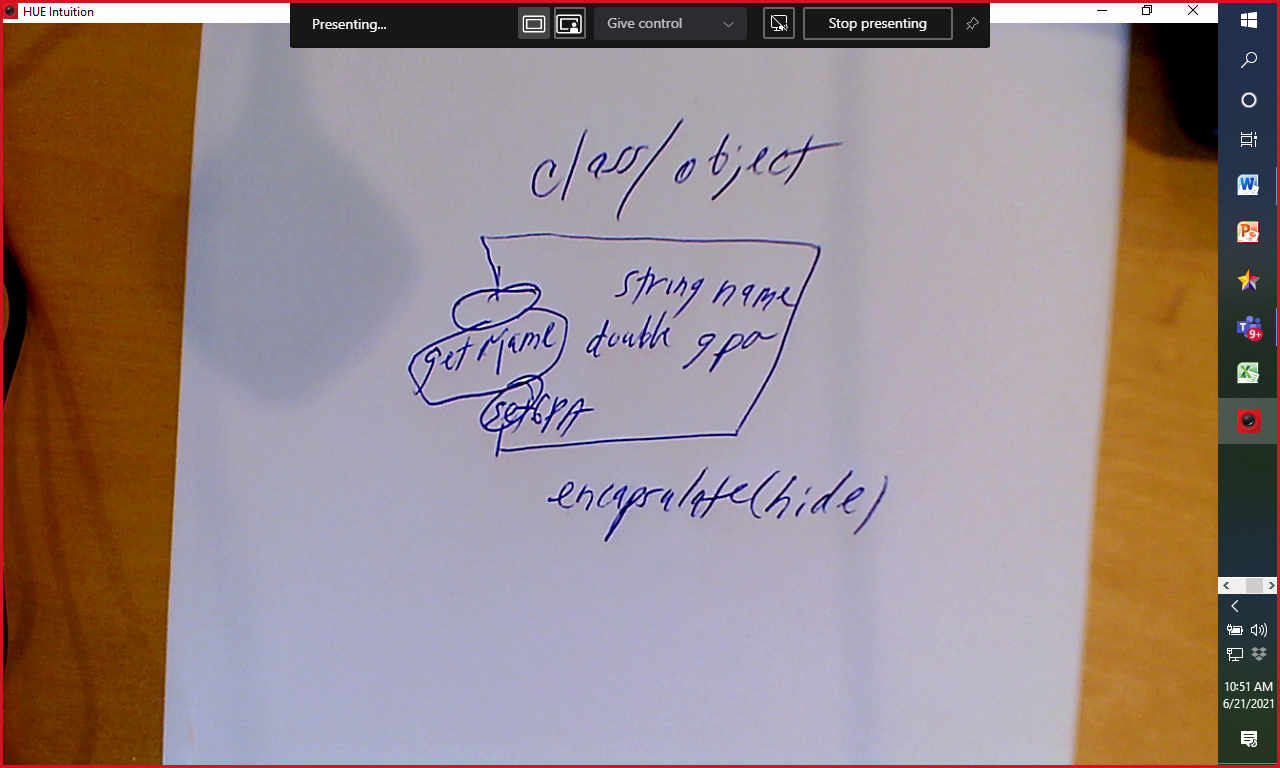 HUE Intuition
Presenting...
Give control
Stop presenting
class/object
string name
getName double gpa
setGPA
encapsulate(hide)
9+
10:51 AM
6/21/2021